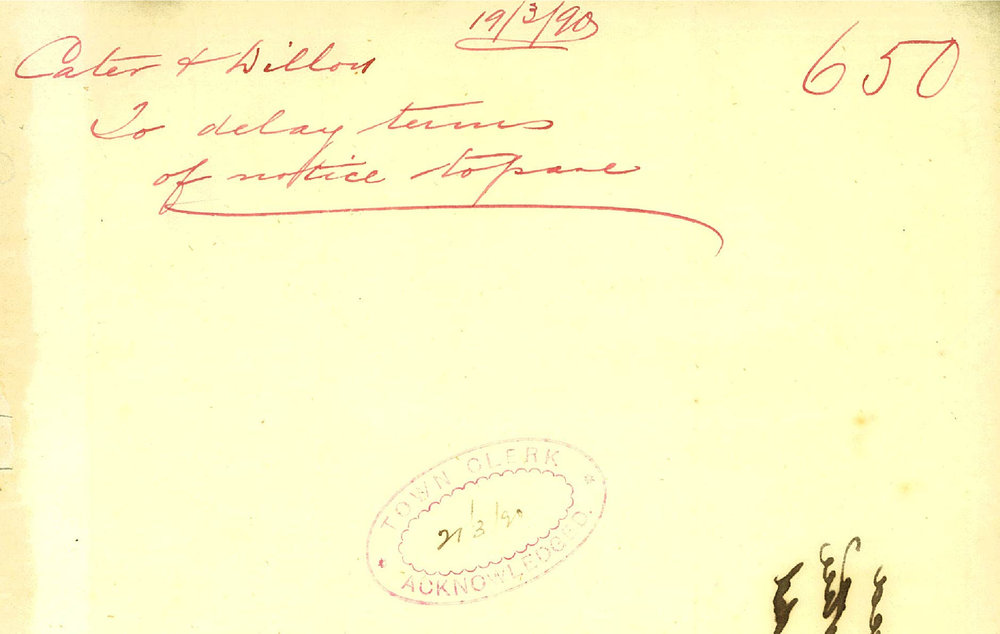 19/3/90
650
Cater & Dillon
To delay terms
of notice to pave
TOWN CLERK
21/3/90
ACKNOWLEDGED.